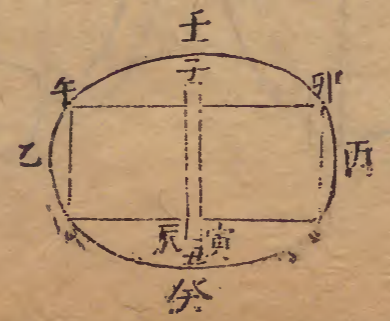 壬
子
午 卯
乙 丙
辰 寅
丑
癸